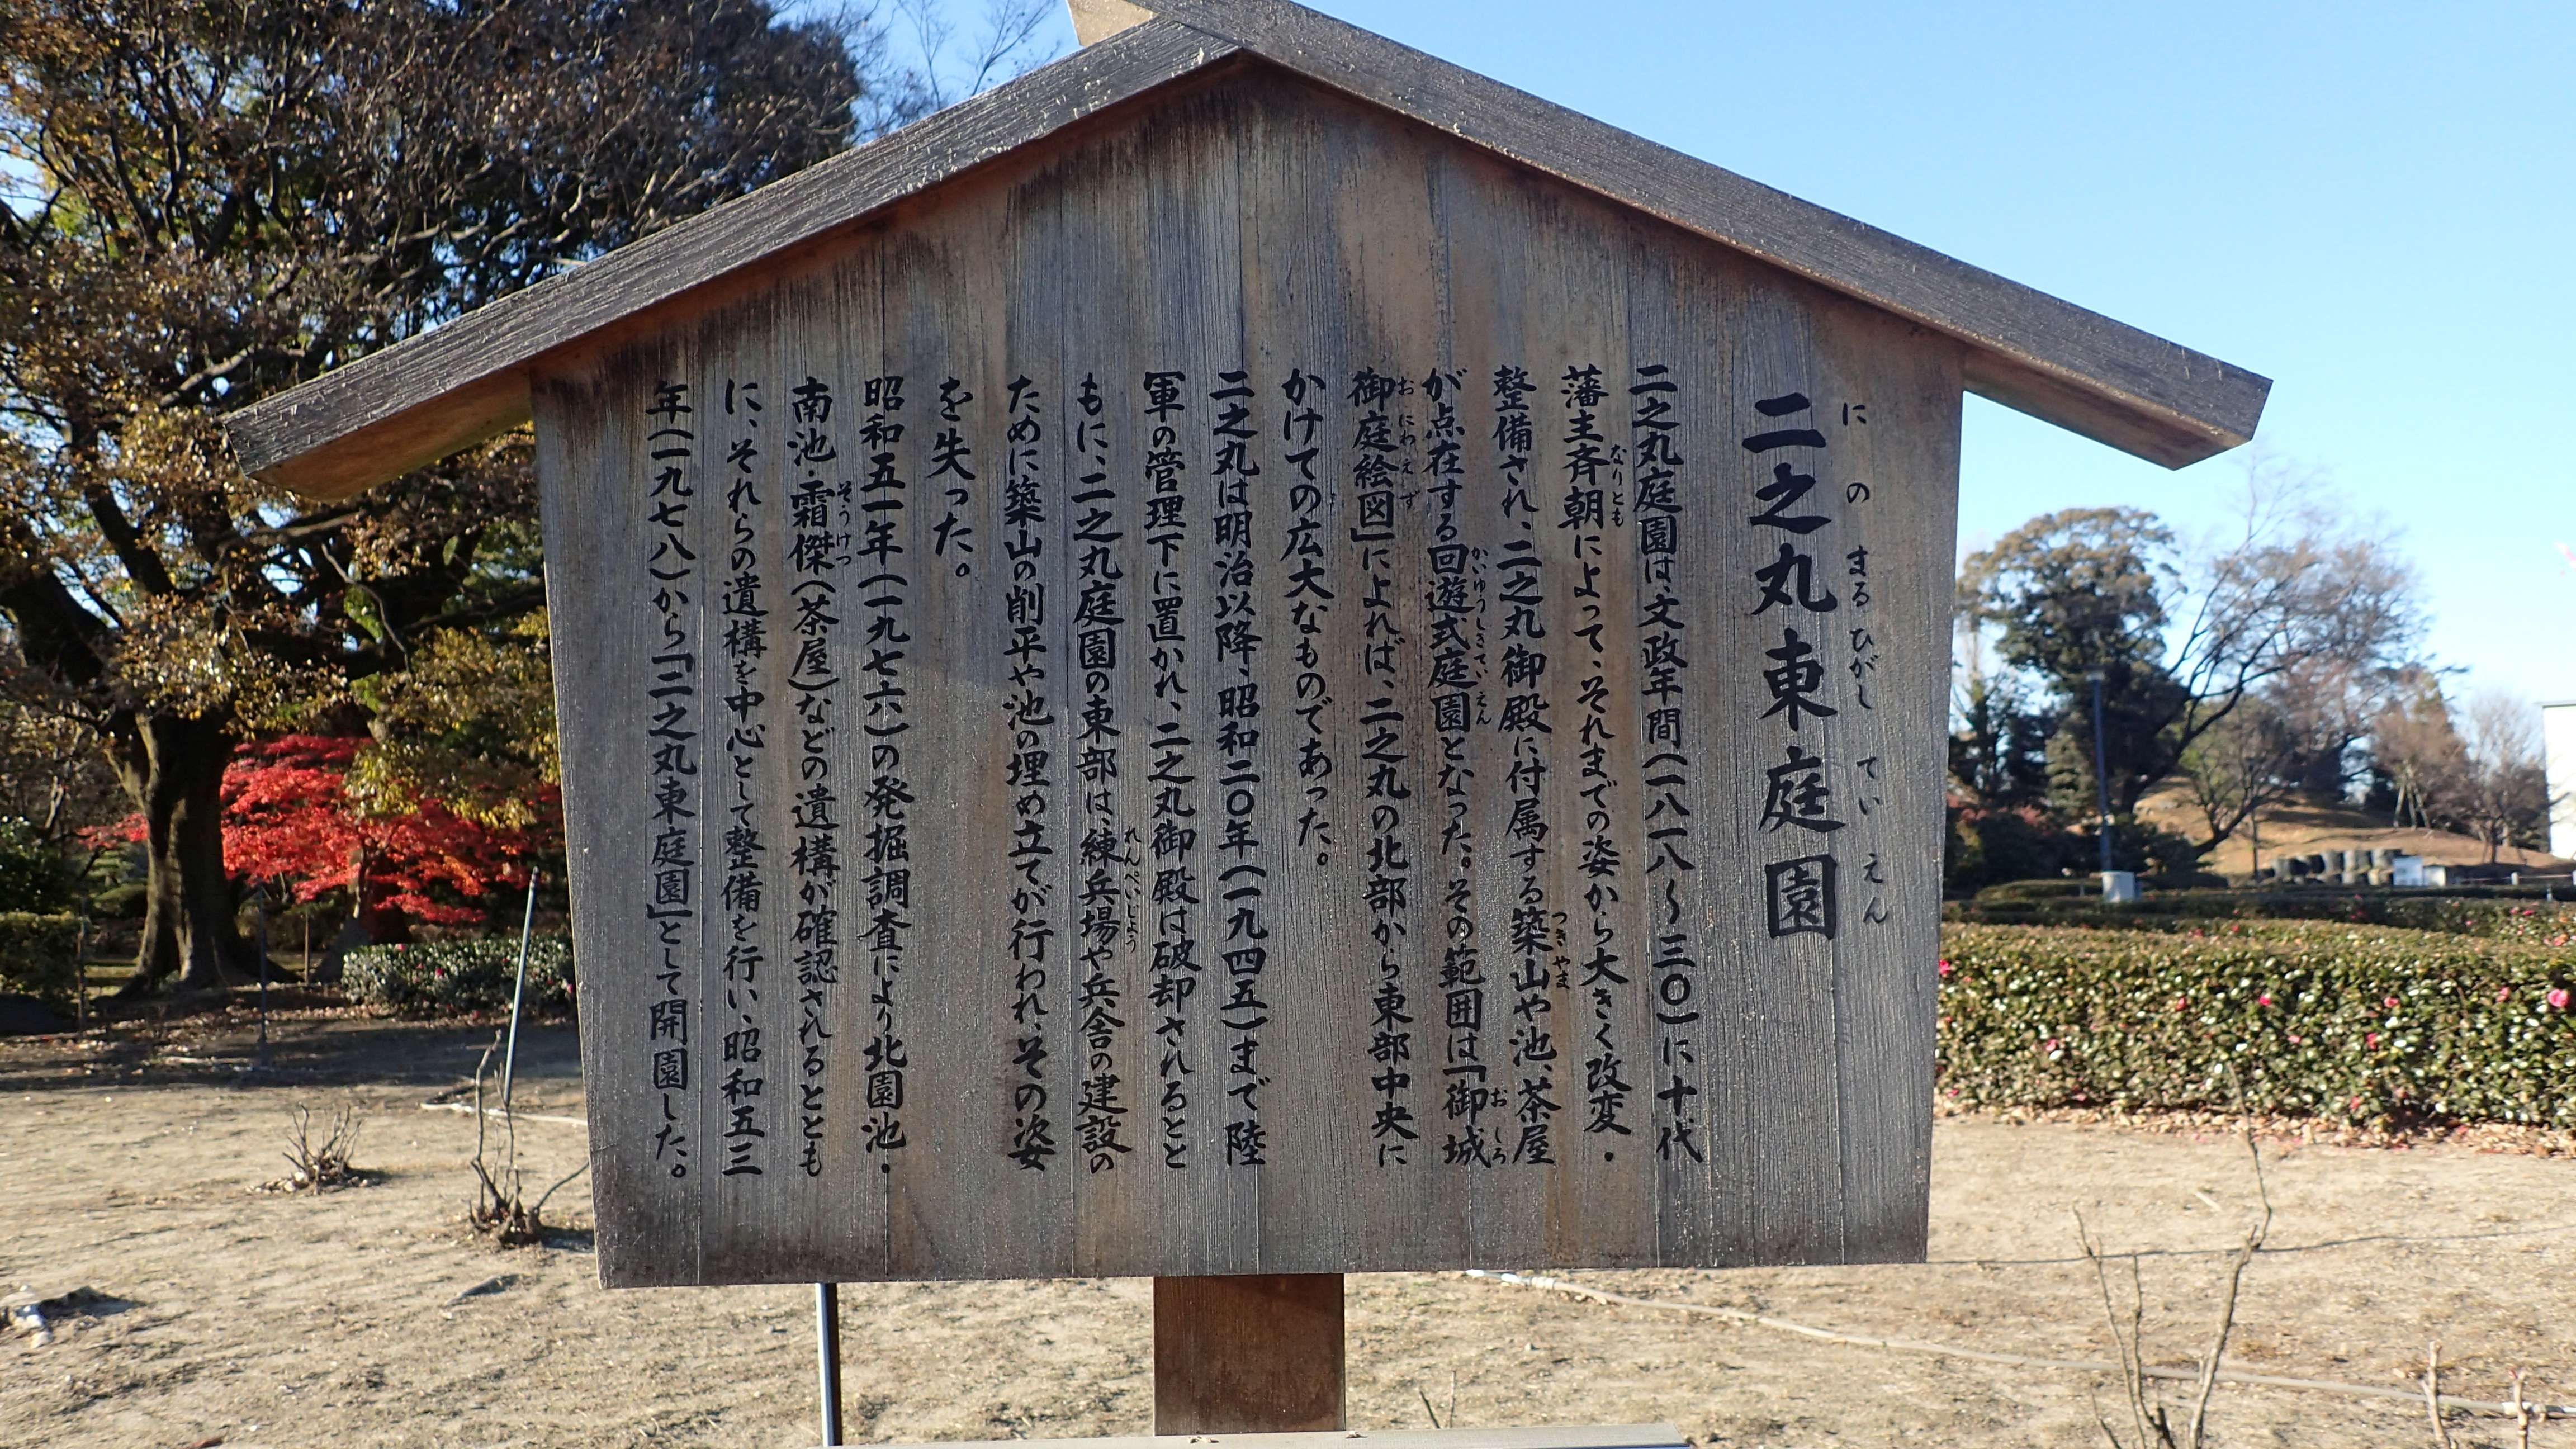 二之丸東庭園
にのまるひがしていえん
二之丸庭園は、文政年間(一八一八～三〇)に十代
藩主斉朝によって、それまでの姿から大きく改変・
なりとも
整備され、二之丸御殿に付属する築山や池、茶屋
つきやま
が点在する回遊式庭園となった。その範囲は「御城
かいゆうしきていえん
おしろ
御庭絵図」によれば、二之丸の北部から東部中央に
おにわえず
かけての広大なものであった。
二之丸は明治以降、昭和二〇年(一九四五)まで陸
軍の管理下に置かれ、二之丸御殿は破却されるとと
もに、二之丸庭園の東部は、練兵場や兵舎の建設の
れんぺいじょう
ために築山の削平や池の埋め立てが行われ、その姿
を失った。
昭和五一年(一九七六)の発掘調査により北園池・
南池・霜傑(茶屋)などの遺構が確認されるととも
そうけつ
に、それらの遺構を中心として整備を行い、昭和五三
年(一九七八)から「二之丸東庭園」として開園した。